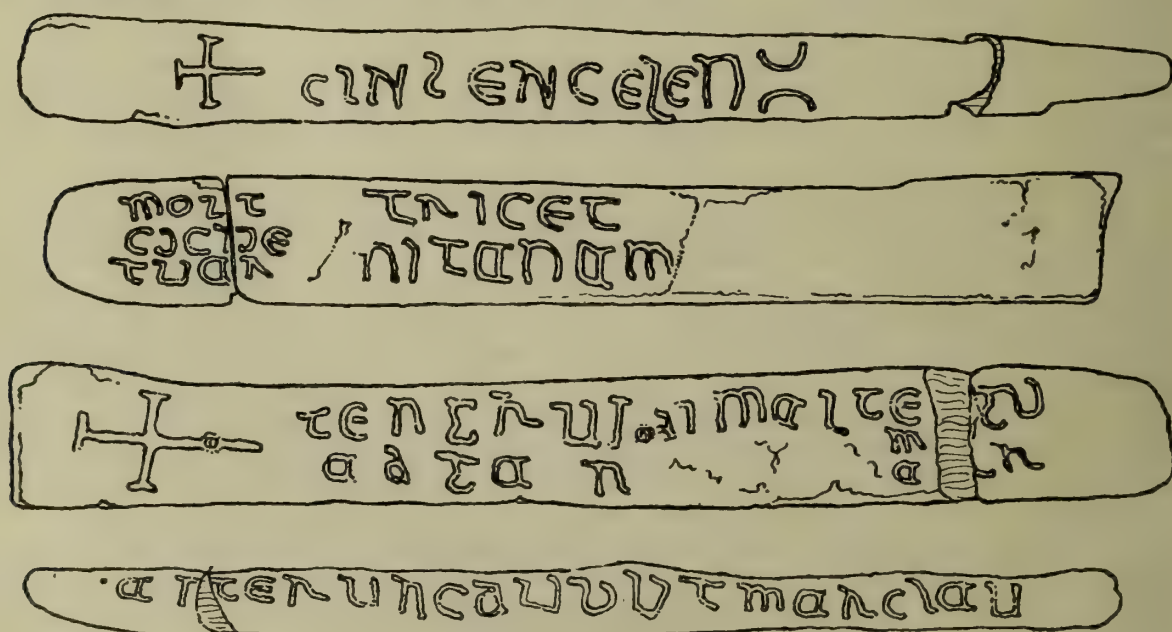 + CINlENCElEN
molt
cicpe
tuar
tricet
nitanam
+ tengrui cimalte
adtan
ma
anteruncduuutmarciau